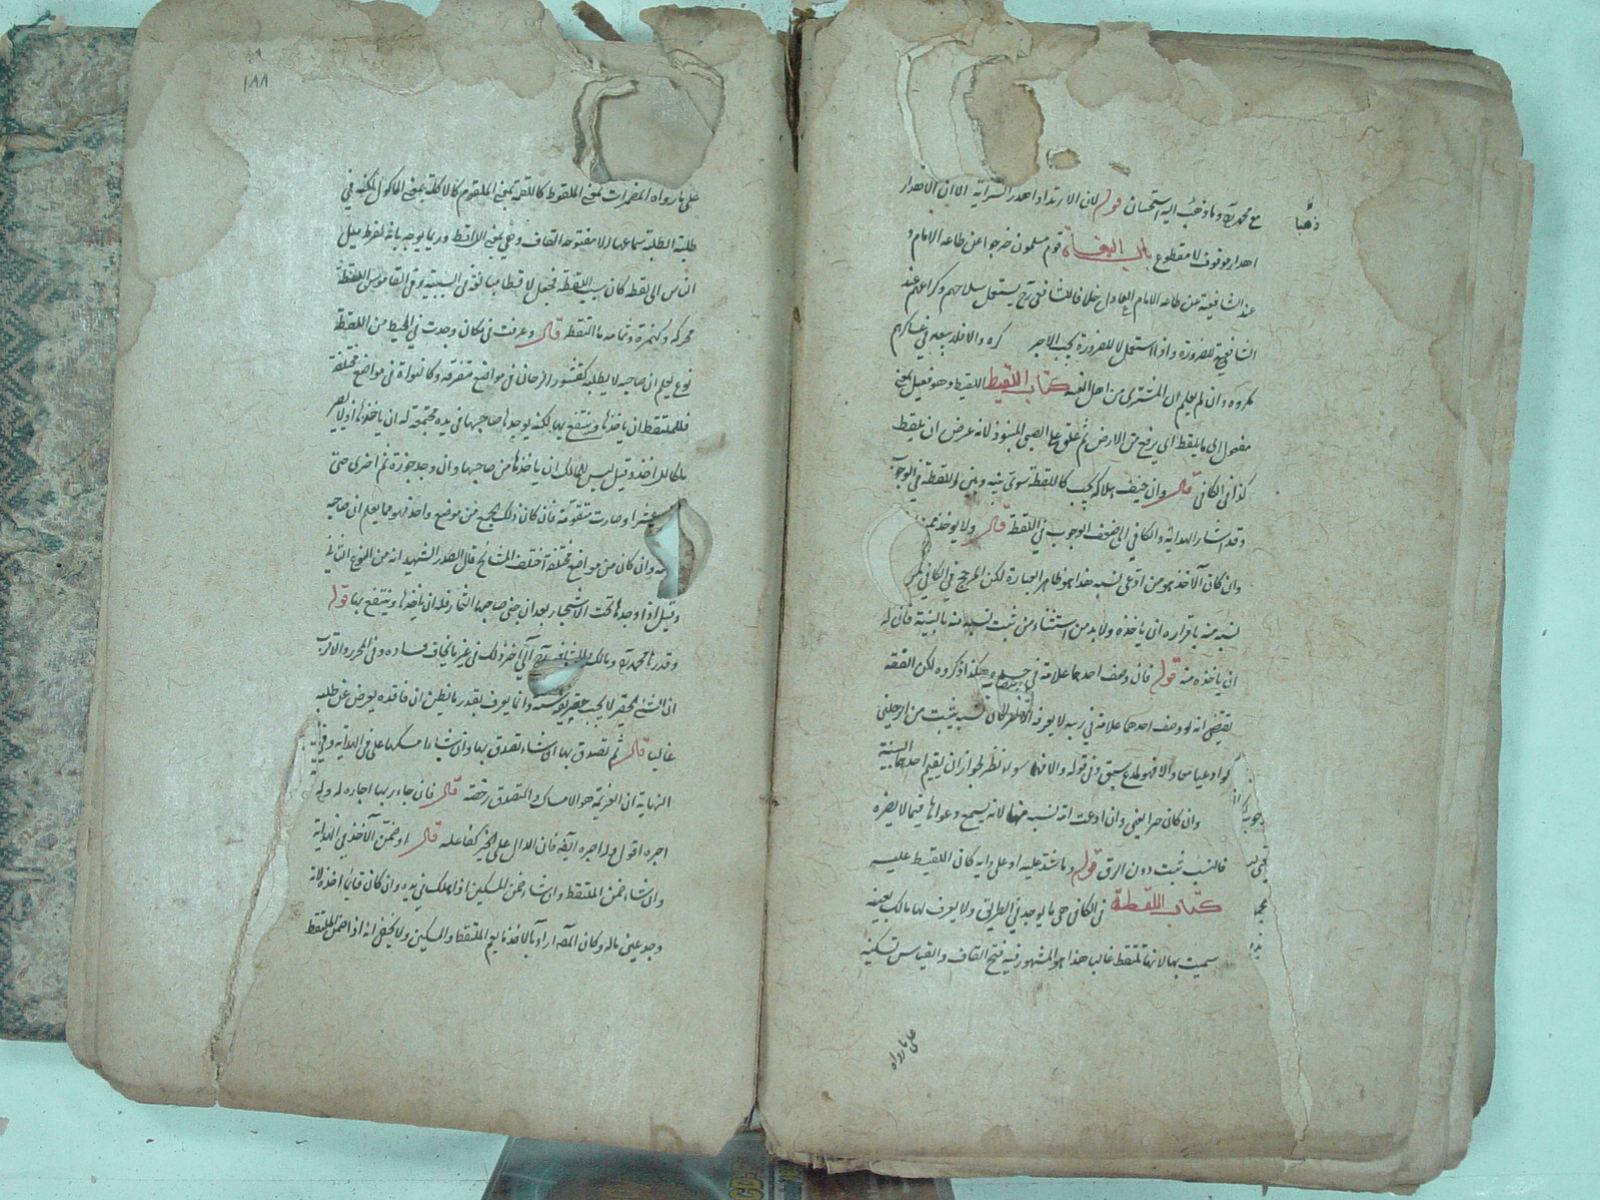 مع محمد رح وما ذهب اليه استحسان قوله لان الارتداد اهدر السراية الا ان الاهدار
ذهبا
اهدار موقوف لا مقطوع باب البغاة قوم مسلمون خرجوا عن طاعة الامام و
عند الشافعية عن طاعة الامام العادل خلافا للشافعي رح يستعمل سلاحهم وكراعهم عند
الشافعي للضرورة واذا استعمل لا للضرورة يجب الاجر كره والا فلا بيعه في عساكرهم
مكروه وان لم يعلم ان المشتري من اهل الفتنة كتاب اللقيط اللقيط وهو فعيل بمعنى
مفعول الى ما يلقط اي يرفع من الارض ثم غلق على الصبي المنبوذ لانه عرض ان يلقط
كذا في الكافي قال وان خيف هلاكه يجب كاللقطة سوى بينه وبين اللقطة في الوجوب
وقد اشار الهداية والكافي الى ضعف الوجوب في اللقطة قال ولا يوخذ منه
وان كان الآخذ هو من ادعى نسبه هذا هو ظاهر العبارة لكن المرجح في الكافي
نسبه منه باقراره ان ياخذه ولا بد من استثناء من ثبت نسبه منه بالبينة فان له
ان ياخذه منه قوله فان وصف احدهما علامة في جسده هكذا ذكروه لكن الفقه
يقتضي انه لو وصف احدهما علامة في نسبه يثبت من الرجلين
لو ادعيا معا والا فهو لمدع سبق وفي قوله والا فهما سواء نظر لجواز ان يقيم احدهما البينة
وان كان حرا يعني وان ادعت امة نسبه منها لانه يسمع دعواها فيما لا يضره
فالنسب ثبت دون الرق قوله وما شد عليه او على دابة كان اللقيط عليه
كتاب اللقطة في الكافي هي ما يوجد في الطريق ولا يعرف لها مالك بعينه
سميت بها لانها تلتقط غالبا هذا هو المشهور فيه فتح القاف والقياس تسكينه
على ما رواه
١٨٨
على ما رواه المضمرات بمعنى الملقوط كاللقمة بمعنى الملقوم كالاكلة بمعنى الماكول لكنه في
طلبة الطلبة سماعها لا مفتوحة القاف وهي بمعنى اللاقط وربما يوجه بانه لفرط ميل
الناس الى لقطه كان سبب اللقطة فجعل لاقطا مبالغة في السببية وفي القاموس اللقطة
محركة وكهمزة وثمامة ما التقط قال وعرفت في مكان وجدت في المحيط من اللقطة
نوع يعلم ان صاحبه لا يطلبه كقشور الرمان في مواضع متفرقة وكالنواة في مواضع مختلفة
فللملتقط ان ياخذها وينتفع بها لكنه لو وجدها صاحبها في يده مجتمعة له ان ياخذها اذ لا يصير
ملكا للاخذ وقيل ليس للمالك ان ياخذها من صاحبها وان وجد جوزة ثم اخرى حتى
عشرا وصارت متقومة فان كان ذلك يجمع من موضع واحد فهو مما يعلم ان صاحبه
وان كان من مواضع مختلفة اختلف المشايخ قال الصدر الشهيد انه من النوع الثاني
وقيل اذا وجدها تحت الاشجار بعد ان جنى صاحبها الثمار فله ان ياخذها وينتفع بها قوله
وقدرها محمد رح ومالك والشافعي رح الى آخر ذلك في غير ما يخاف فساده وفي المحرر والاقرب
ان الشيء الحقير لا يجب تعريفه سنة وانما يعرف بقدر ما يظن ان فاقده يعرض عن طلبه
غالبا قال ثم تصدق بها ان شاء تصدق بها وان شاء امسكها على في الهداية وفي
النهاية ان العزيمة هو الامساك والتصدق رخصة قال فان جاء ربها اجازه له وله
اجره اقول وله اجره ايضا فان الدال على الخير كفاعله قال او ضمن الآخذ في الهداية
وان شاء ضمن الملتقط وان شاء ضمن المسكين اذا هلك في يده وان كان قائما اخذه لانه
وجد عين ماله وكان المصنف اراد بالآخذ ما يعم الملتقط والمسكين ولا يخفى انه اذا ضمن الملتقط